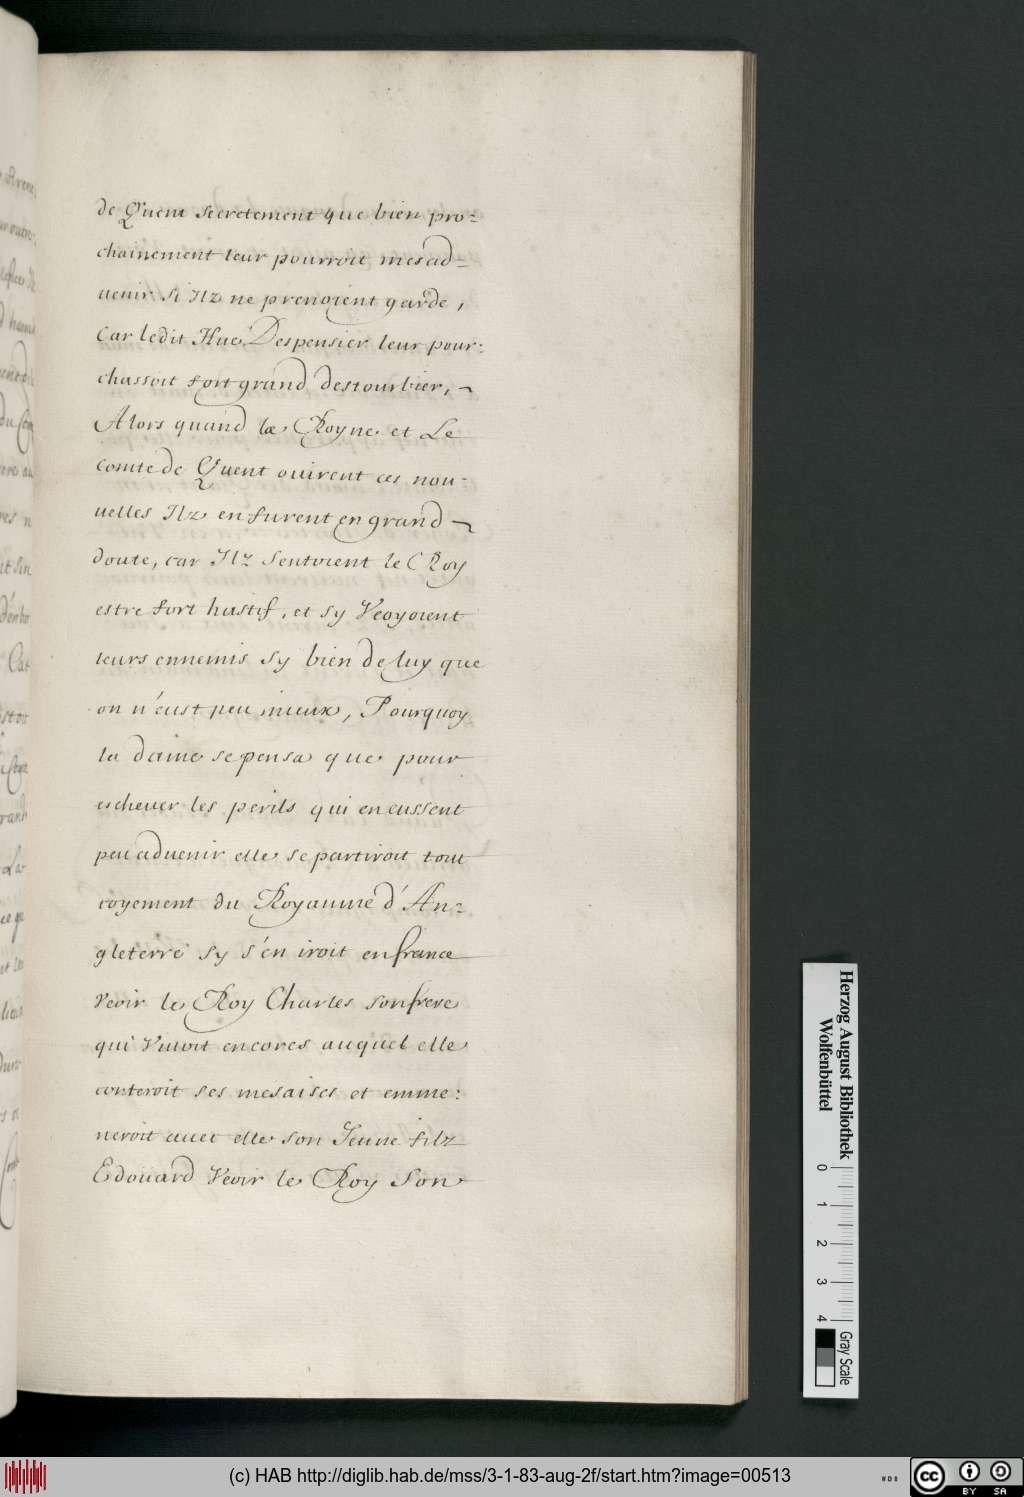 de Quent secretement que bien pro-
chainement leur pourroit mesad-
uenir si Ilz ne prenoient garde,
Car ledit Hue Despensier leur pour-
chassoit fort grand destourbier,
Alors quand la Royne et Le
comte de Quent ouirent ces nou-
uelles Ilz en furent en grand
doute, car Ilz sentoient le Roy
estre fort hastif, et sy Veoyoient
leurs ennemis sy bien de luy que
on n'eust peu mieux, Pourquoy
la dame se pensa que pour
escheuer les perils qui en eussent
peu aduenir elle se partiroit tout
coyement du Royaume d'An-
gleterre sy s'en iroit en france
Veoir le Roy Charles son frere
qui Viuoit encores auquel elle
conteroit ses mesaises et emme:
neroit auec elle son Jeune filz
Edoüard Veoir le Roy Son
Herzog August Bibliothek
Wolfenbüttel
0 1 2 3 4
Gray Scale
(c) HAB http://diglib.hab.de/mss/3-1-83-aug-2f/start.htm?image=00513
WDB
cc BY SA